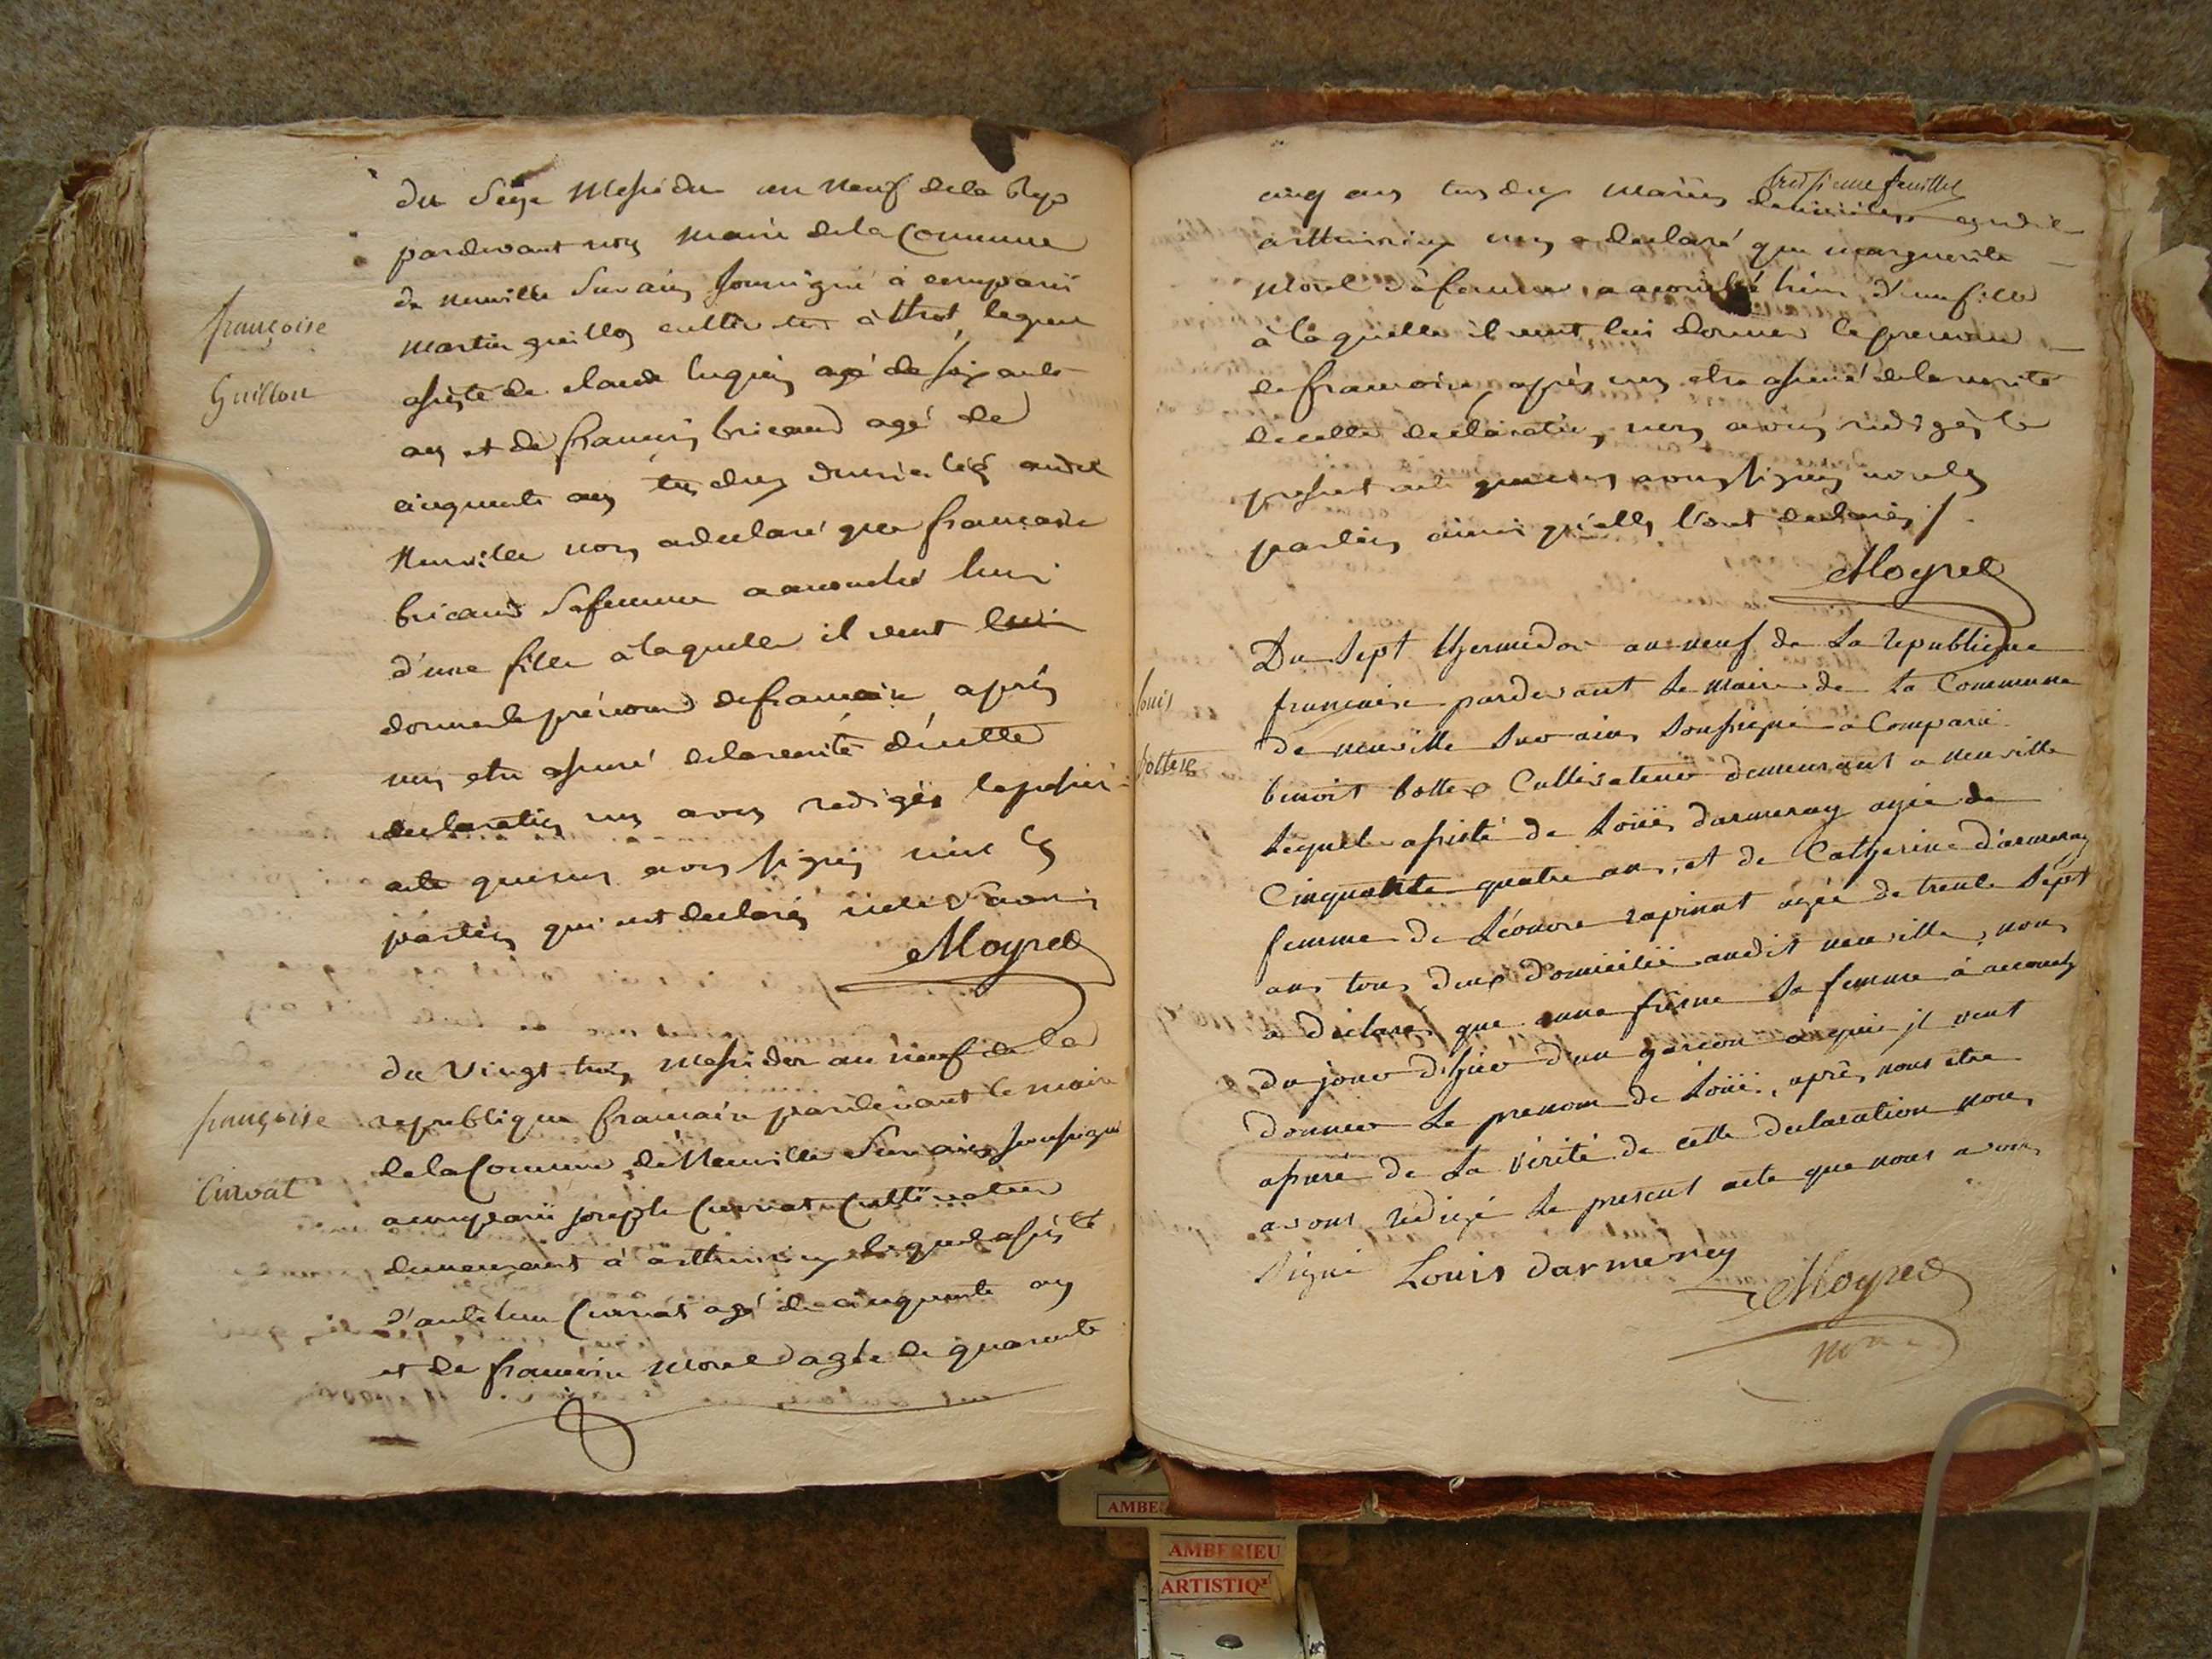 françoise
Guillon
du Seize Messidor an neuf de la Rep
pardevant nous maire de la Commune
de neuville Sur ain soussigné à comparü
martin guillon cultivateur à thol lequel
assisté de claude lugrin agé de soixante
ans et de francois bricaud agé de
cinquante ans tous deux domiciliés audit
Neuville nous a declaré que françoise
bricaud Sa femme a accouché hier
d'une fille à laquelle il veut lui
donner le prénom de francoise après
nous etre assuré de la verité d'icelle
declaration nous avons redigés le présent
acte que nous avons signés non les
parties qui ont declarés ne le Savoir
Moyret
françoise
Curvat
du Vingt trois Messidor an neuf de la
republique francaise pardevant le maire
de la Commune de Neuville Sur ain soussigné
a comparü joseph Curvat Cultivateur
demeurant à asthurieux lequel assisté
d'anthelme Curvat agé de cinquante ans
et de francoise Morel agée de quarante
treisieme feuillet
cinq ans tous deux mariés domiciliés audit
asthurieux nous a declaré que marguerite
Morel Sa femme a accouché hier d'une fille
à laquelle il veut lui donner le prenom
de francoise après nous etre assuré de la verité
de celle declaration, nous avons rédigés le
present acte que nous avons signés non les
parties ainsi qu'elles l'ont declarés /.
Moyret
louis
bottex
Du Sept thermidor an neuf de La republique
francaise pardevant Le maire de La Commune
de neuville Sur ain Soussigné a Comparü
benoit bottex Cultivateur demeurant a neuville
Lequel assisté de Loüis darmeney agée de
Cinquante quatre ans, et de Catherine d'armeney
femme de Léonore rapinat agée de trente Sept
ans tous deux domicilié audit neuville, nous
a déclaré que anne Sa femme à accouché
du jour d'hier d'un garcon a qui jl veut
donner Le prenom de Loüis, après nous etre
assuré de La vérité de cette declaration nous
avons rédigé Le present acte que nous avons
Signé Louis darmeney
Moyret
AMBE
AMBERIEU
ARTISTIQ